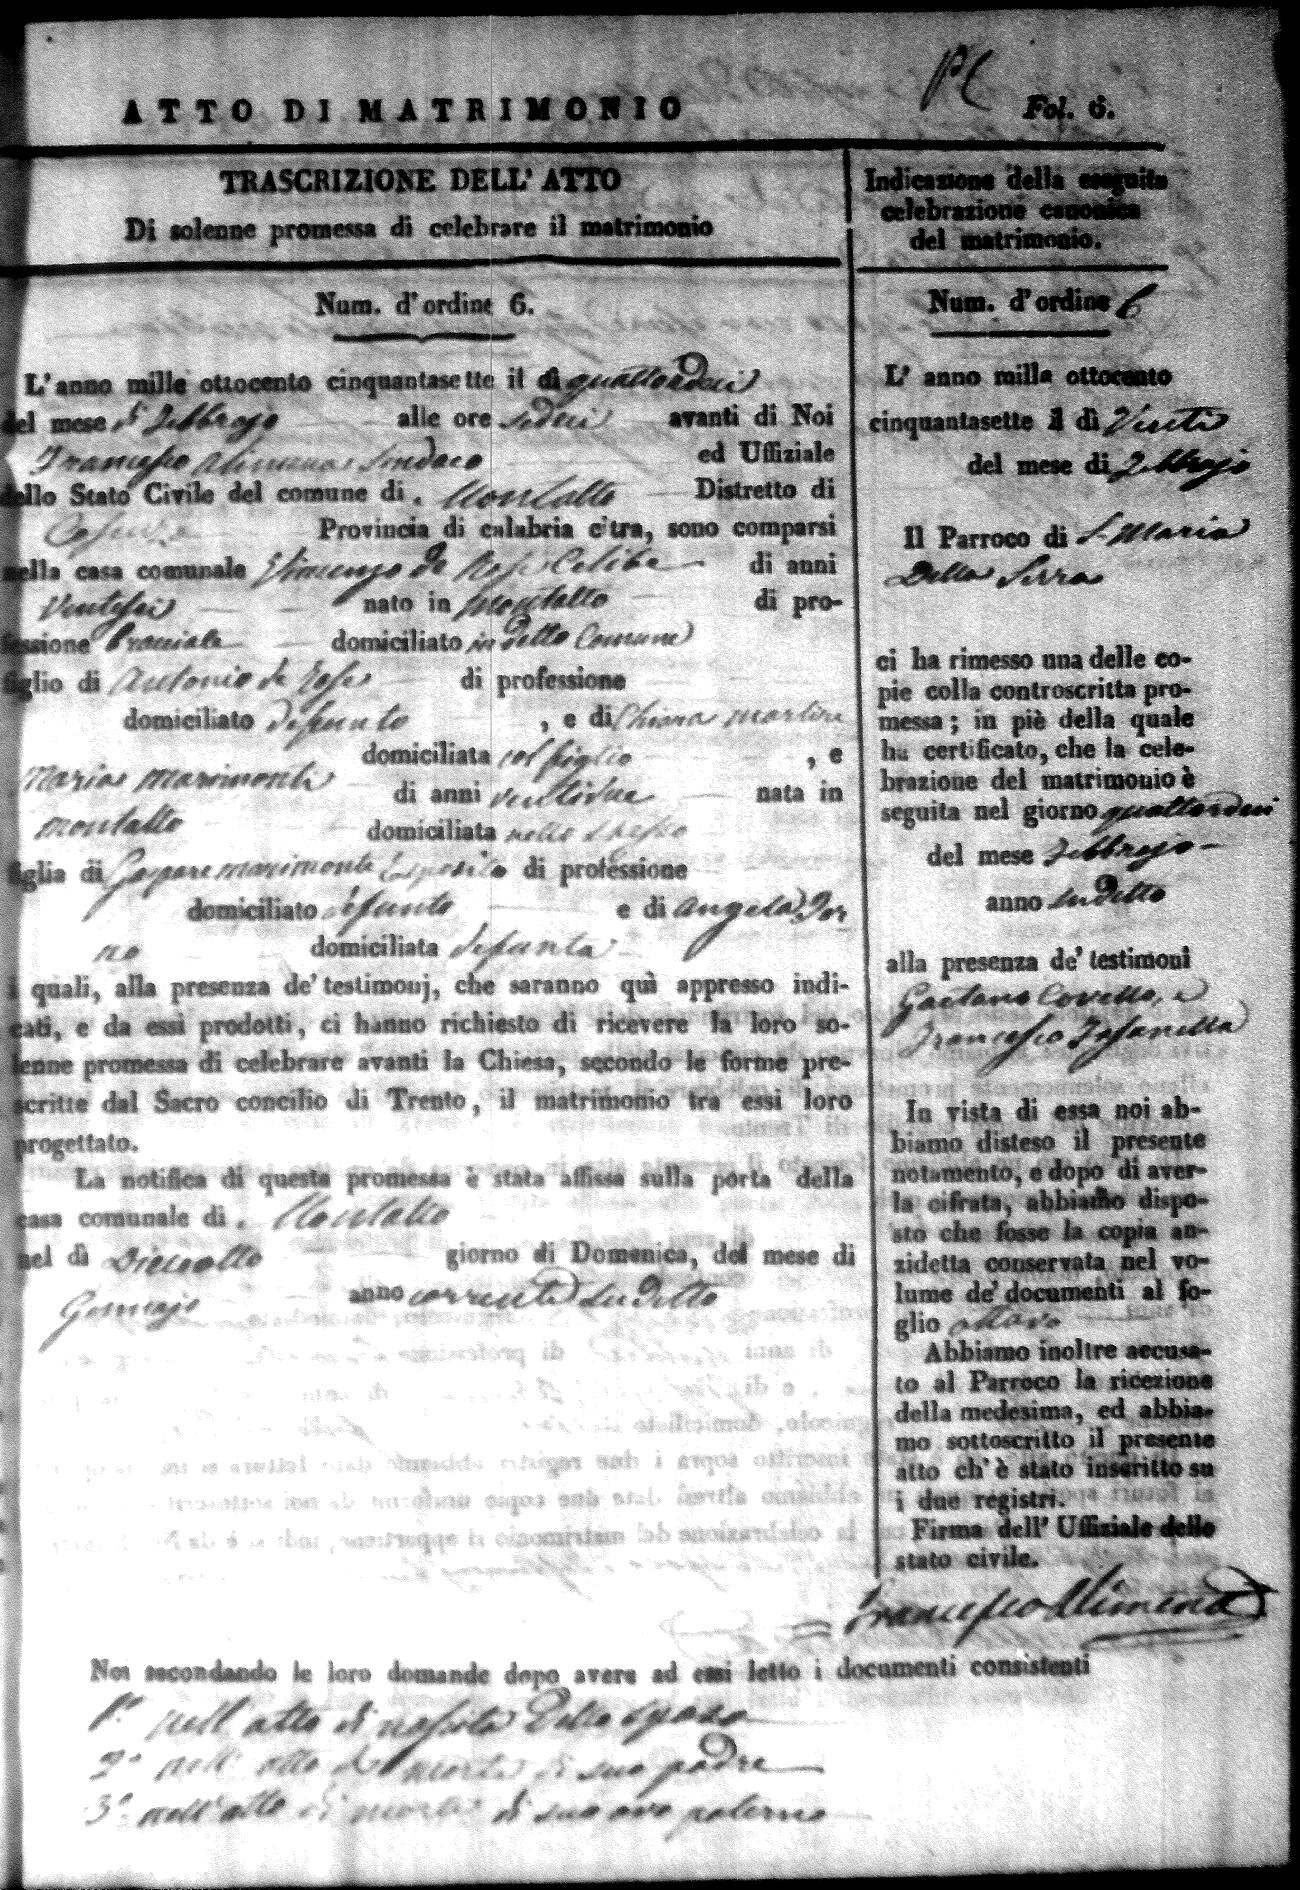 ATTO DI MATRIMONIO
Fol. 6.
TRASCRIZIONE DELL' ATTO
Di solenne promessa di celebrare il matrimonio
Num. d'ordine 6.
L'anno mille ottocento cinquantasette il dì quattordici
del mese di Febbrajo alle ore sedeci avanti di Noi
Francesco Alimena Sindaco ed Uffiziale
dello Stato Civile del comune di . Montalto Distretto di
Cosenza Provincia di calabria citra, sono comparsi
nella casa comunale Vincenzo de Rose Celibe di anni
Ventisei nato in Montalto di pro-
fessione Bracciale domiciliato in detto Comune
figlio di Antonio de Rose di professione
domiciliato defunto , e di Chiara Martire
domiciliata col figlio , e
Maria Marimonti di anni ventidue nata in
Montalto domiciliata nello stesso
figlia di Gaspare Marimonti Esposito di professione
domiciliato defunto e di Angela
no domiciliata defunta
i quali, alla presenza de' testimonj, che saranno quì appresso indi-
cati, e da essi prodotti, ci hanno richiesto di ricevere la loro so-
lenne promessa di celebrare avanti la Chiesa, secondo le forme pre-
scritte dal Sacro concilio di Trento, il matrimonio tra essi loro
progettato.
La notifica di questa promessa è stata affissa sulla porta della
casa comunale di . Montalto
nel dì Dieciotto giorno di Domenica, del mese di
Gennajo anno corrente sudetto
Indicazione della eseguita
celebrazione canonica
del matrimonio.
Num. d'ordine 6
L' anno mille ottocento
cinquantasette il dì Venti
del mese di Febbrajo
Il Parroco di S. Maria
Della Serra
ci ha rimesso una delle co-
pie colla controscritta pro-
messa ; in piè della quale
ha certificato, che la cele-
brazione del matrimonio è
seguita nel giorno quattordici
del mese Febbrajo
anno sudetto
alla presenza de' testimoni
Gaetano Covello, e
Francesco
In vista di essa noi ab-
biamo disteso il presente
notamento, e dopo di aver-
la cifrata, abbiamo dispo-
sto che fosse la copia an-
zidetta conservata nel vo-
lume de' documenti al fo-
glio ottavo
Abbiamo inoltre accusa-
to al Parroco la ricezione
della medesima, ed abbia-
mo sottoscritto il presente
atto ch' è stato inscritto su
i due registri.
Firma dell' Uffiziale dello
stato civile.
Francesco Alimena
Noi secondando le loro domande dopo avere ad essi letto i documenti consistenti
1.° nell'atto di nascita dello sposo
2.° nell'atto di morte di suo padre
3.° nell'atto di morte di suo avo paterno